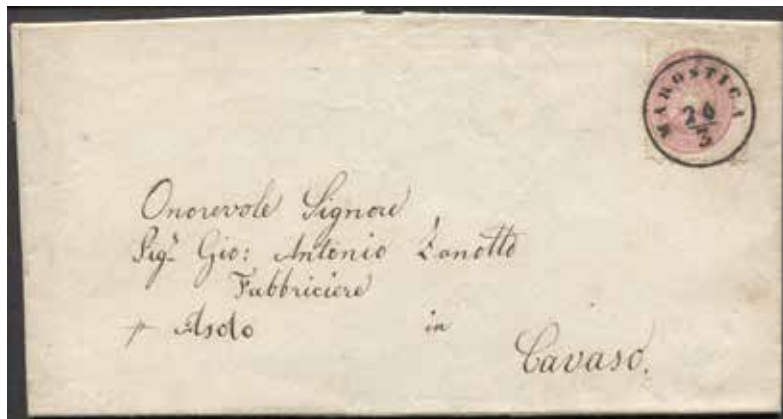 MAROSTICA
26/3
Onorevole Signore
Sigr Gio: Antonio Zanotto
Fabbriciere
p Asolo in
Cavaso.